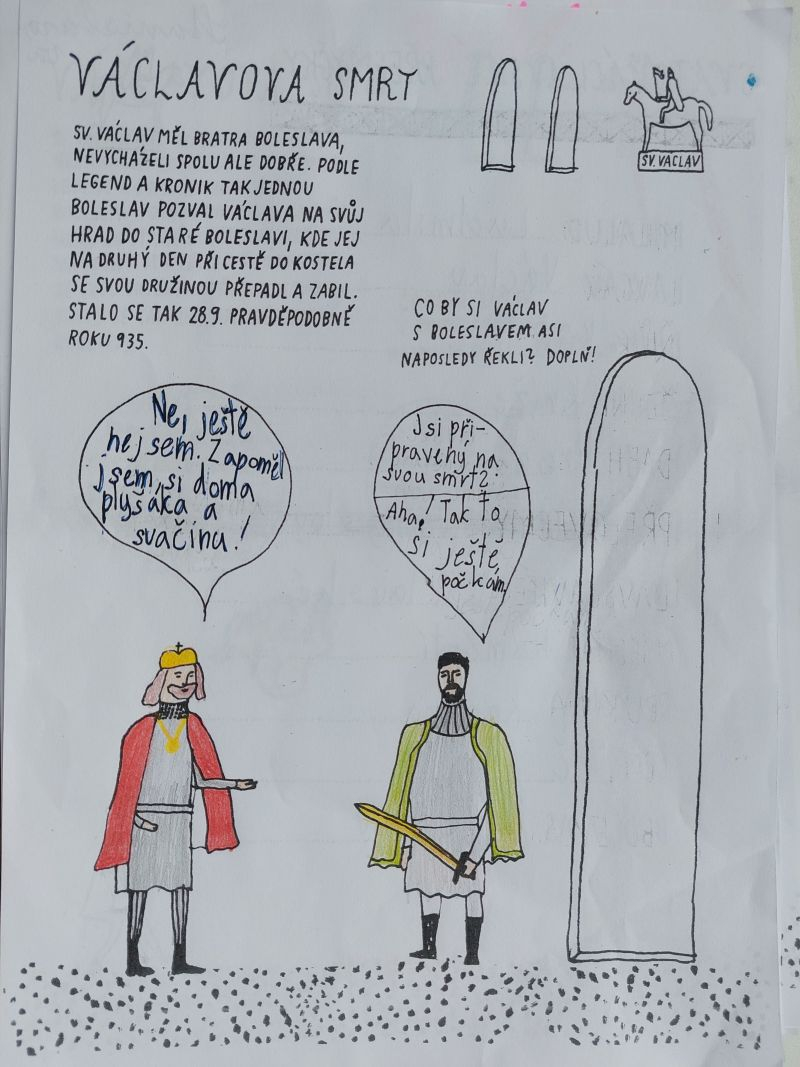 VÁCLAVOVA SMRT
SV. VÁCLAV
SV. VÁCLAV MĚL BRATRA BOLESLAVA,
NEVYCHÁZELI SPOLU ALE DOBŘE. PODLE
LEGEND A KRONIK TAK JEDNOU
BOLESLAV POZVAL VÁCLAVA NA SVŮJ
HRAD DO STARÉ BOLESLAVI, KDE JEJ
NA DRUHÝ DEN PŘI CESTĚ DO KOSTELA
SE SVOU DRUŽINOU PŘEPADL A ZABIL.
STALO SE TAK 28.9. PRAVDĚPODOBNĚ
ROKU 935.
CO BY SI VÁCLAV
S BOLESLAVEM ASI
NAPOSLEDY ŘEKLI? DOPLŇ!
Ne, ještě
nejsem. Zapoměl
jsem si doma
plyšáka a
svačinu!
Jsi při-
pravený na
svou smrt?
Aha! Tak to
si ještě
počkám.